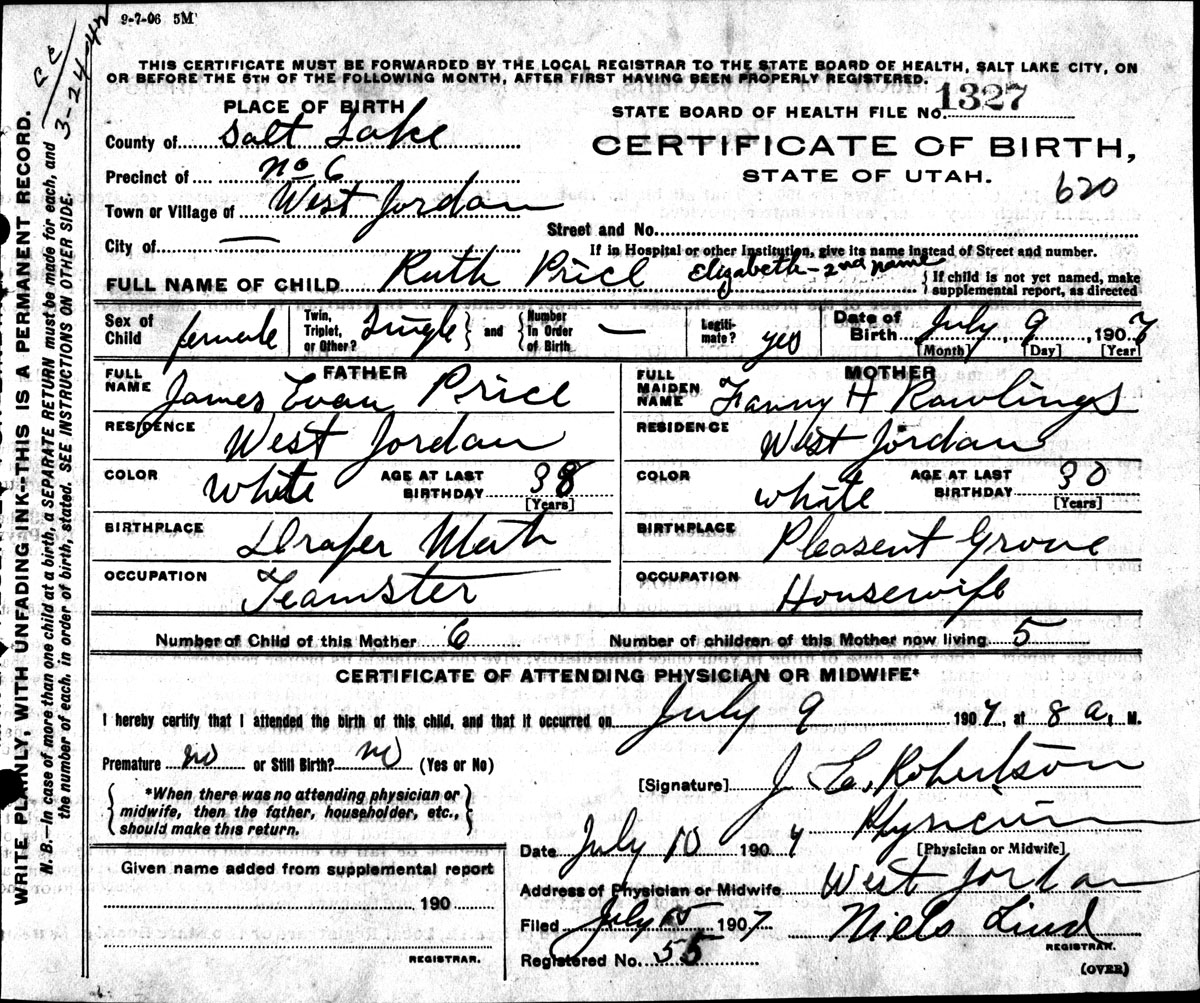 9-7-06 5M
3-24-42
THIS CERTIFICATE MUST BE FORWARDED BY THE LOCAL REGISTRAR TO THE STATE BOARD OF HEALTH, SALT LAKE CITY, ON
OR BEFORE THE 5TH OF THE FOLLOWING MONTH, AFTER FIRST HAVING BEEN PROPERLY REGISTERED.
PLACE OF BIRTH
STATE BOARD OF HEALTH FILE NO. 1327
County of Salt Lake
CERTIFICATE OF BIRTH,
STATE OF UTAH.
620
Precinct of No 6
Town or Village of West Jordan
Street and No.
City of —
If in Hospital or other Institution, give its name instead of Street and number.
FULL NAME OF CHILD Ruth Price Elizabeth - 2nd name
{ If child is not yet named, make
supplemental report, as directed
Sex of Child female
Twin, Triplet, or Other? Single } and { Number In Order of Birth —
Legitimate? yes
Date of Birth July 9, 1907
[Month] [Day] [Year]
FATHER
FULL NAME James Evan Price
RESIDENCE West Jordan
COLOR White AGE AT LAST BIRTHDAY 38
[Years]
BIRTHPLACE Draper Utah
OCCUPATION Teamster
MOTHER
FULL MAIDEN NAME Fanny H Rawlings
RESIDENCE West Jordan
COLOR white AGE AT LAST BIRTHDAY 30
[Years]
BIRTHPLACE Pleasent Grove
OCCUPATION Housewife
Number of Child of this Mother 6 Number of children of this Mother now living 5
CERTIFICATE OF ATTENDING PHYSICIAN OR MIDWIFE*
I hereby certify that I attended the birth of this child, and that it occurred on July 9 1907, at 8 a. M.
Premature no or Still Birth? no (Yes or No)
{ *When there was no attending physician or
midwife, then the father, householder, etc.,
should make this return. }
[Signature] J. E. Robertson
Physician
[Physician or Midwife]
Date July 10 1907
Address of Physician or Midwife West Jordan
Filed July 1907 Niels Lind
REGISTRAR.
Registered No. 55
(OVER)
Given name added from supplemental report
190
REGISTRAR.
WRITE PLAINLY, WITH UNFADING INK--THIS IS A PERMANENT RECORD.
N. B.—In case of more than one child at a birth, a SEPARATE RETURN must be made for each, and
the number of each, in order of birth, stated. SEE INSTRUCTIONS ON OTHER SIDE.